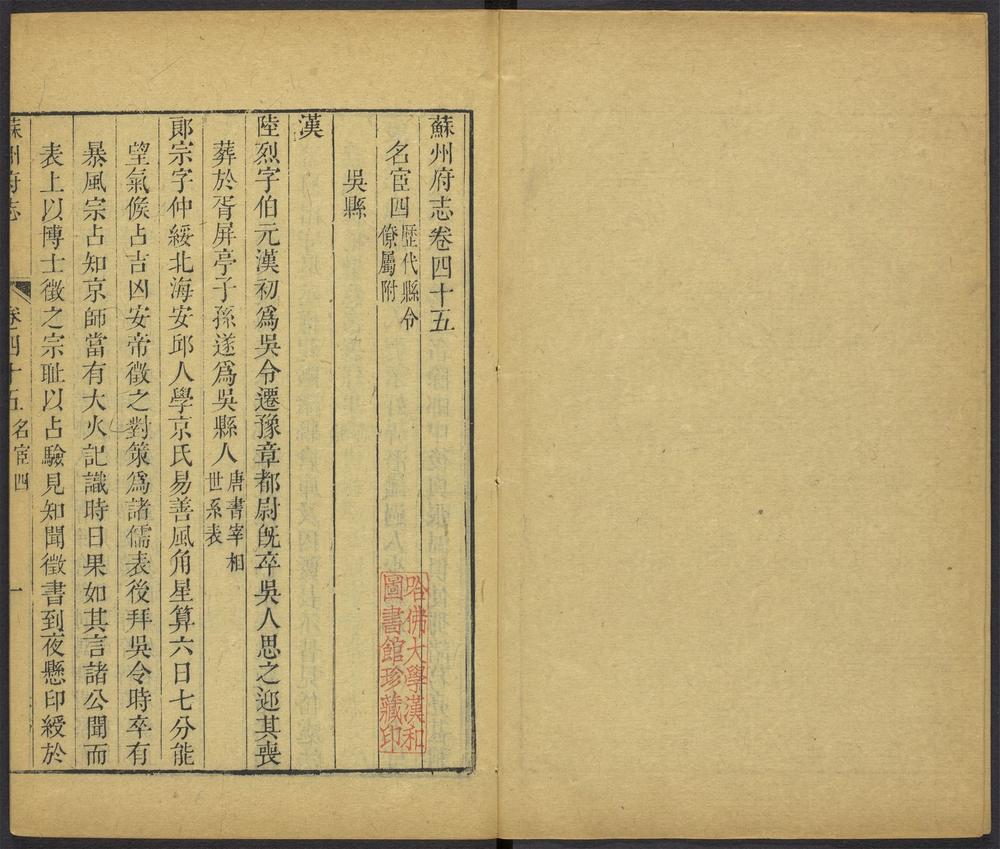 蘇州府志卷四十五
名宦四歷代縣令
僚屬附
吳縣
漢
陸烈字伯元漢初爲吳令遷豫章都尉旣卒吳人思之迎其喪
葬於胥屏亭子孫遂爲吳縣人唐書宰相
世系表
郞宗字仲綏北海安邱人學京氏易善風角星算六日七分能
望氣候占吉凶安帝徵之對策爲諸儒表後拜吳令時卒有
暴風宗占知京師當有大火記識時日果如其言諸公聞而
表上以博士徵之宗耻以占驗見知聞徵書到夜懸印綬於
蘇州府志
卷四十五名宦四
一
哈佛大學漢和
圖書館珍藏印